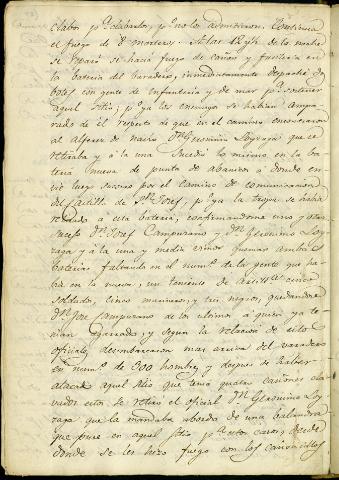 clabor pª celebarlos, pº no lo admitieron. Continua
el fuego de dº morteros. A las 12 y ½ de la noche
se reparó se hacia fuego de cañon y fusileria en
la bateria del baradero, inmediatamente despaché dos
botes con gente de infanteria y de mar pª sostener
aquel sitio; pº ya los enemigos se habian ampa-
rado de él respeto de que en el camino encontraron
al alferez de navio Dⁿ Geronimo Loyzaga que se
retiraba y á la una sucedió lo mismo en la ba-
teria nueva de punta de abanico á donde en-
vié luego socorro por el camino de comunicacion
del castillo de Sⁿ Josef, pº ya la tropa se habia
retirado á esta bateria, confirmandome uno y otro
suceso Dⁿ Josef Campuzano y Dⁿ Geronimo Loy-
zaga y á la una y media vimos quemar ambas
baterias faltando en el numº de la gente que ha-
bia en la nueva, un teniente de artillª cinco
soldados, cinco marineros, y tres negros, quedandose
Dⁿ Jose Campuzano de los ultimos á quien ya te-
nian agarrado, y segun la relacion de estos
oficiales desembarcaron mas arriva del varadero
en numº de 300 hombres y despues de haber
atacado aquel sitio que tenia quatro cañones cla-
vados estos se retiró el oficial Dⁿ Geronimo Loy-
zaga que la mandaba abordo de una balandra
que puse en aquel sitio pª estos casos desde
donde se les hizo fuego con los cañoncitos